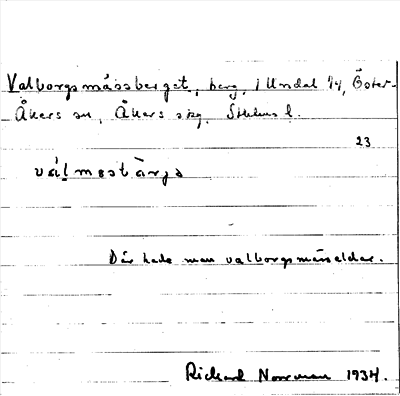 Valborgsmässberget, berg, i Undal 1/4, Öster-
Åkers sn, Åkers skg. Sthlms l.
23
válmesbärjə
Där hade man valborgsmässeldar.
Rickard Norrman 1934.